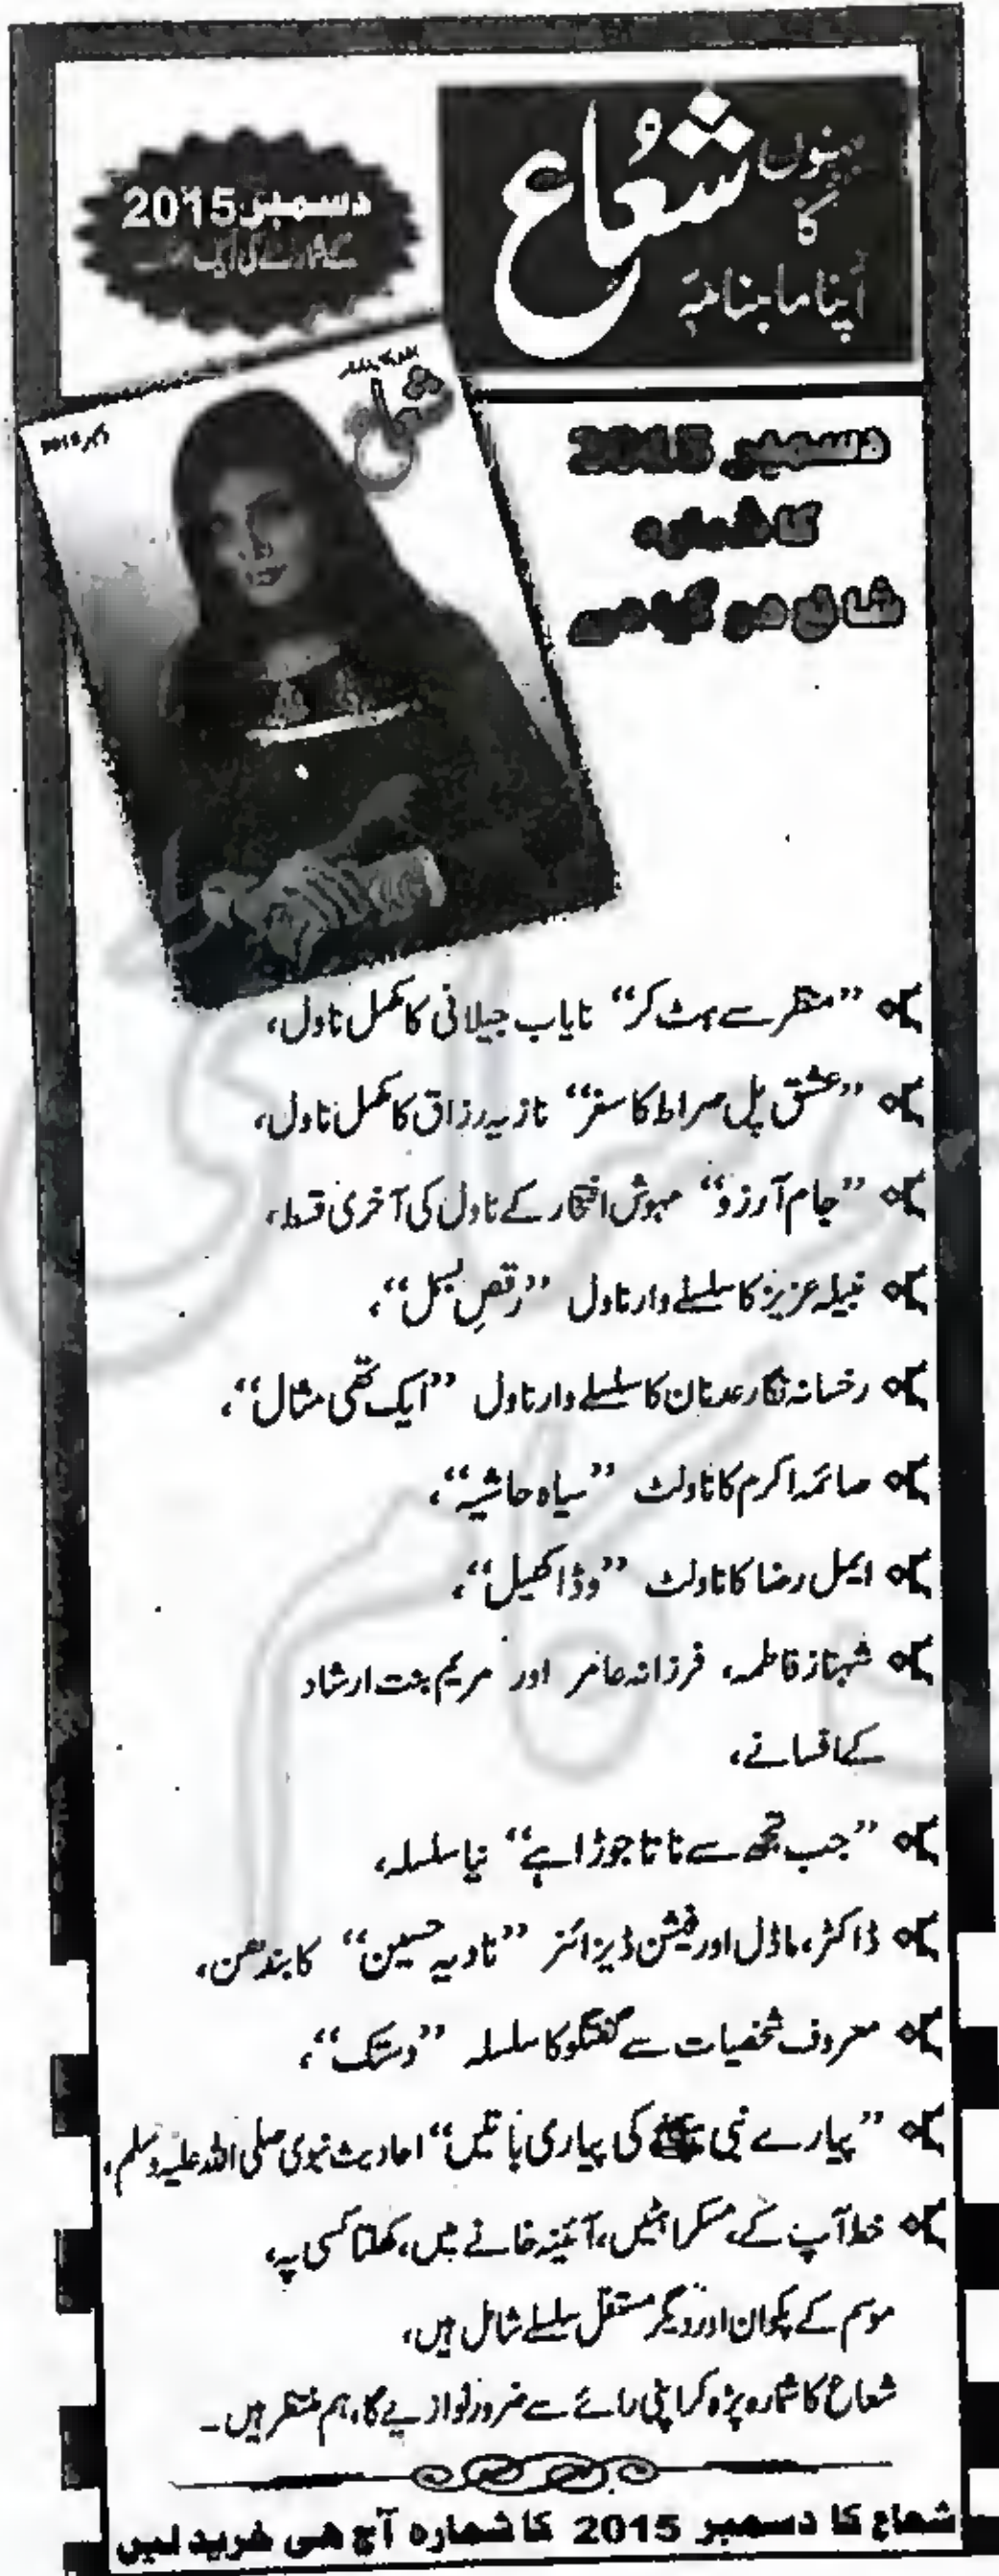 بہنوں
کا
اپنا ماہنامہ
شُعاع
دسمبر 2015
کے شمارے کی ایک جھلک
شعاع
دسمبر 2015
کا شمارہ
شائع ہو گیا ہے
”منظر سے ہٹ کر“ نایاب جیلانی کا مکمل ناول،
”عشق پل صراط کا سفر“ نازیہ رزاق کا مکمل ناول،
”جام آرزو“ مہوش افتخار کے ناول کی آخری قسط،
نبیلہ عزیز کا سلسلے وار ناول ”رقصِ بسمل“،
رخسانہ نگار عدنان کا سلسلے وار ناول ”ایک تھی مثال“،
صائمہ اکرم کا ناولٹ ”سیاہ حاشیہ“،
ایمل رضا کا ناولٹ ”وڈا کھیل“،
شہناز فاطمہ، فرزانہ عامر اور مریم بنت ارشاد
کے افسانے،
”جب تجھ سے ناتا جوڑا ہے“ نیا سلسلہ،
ڈاکٹر، ماڈل اور فیشن ڈیزائنر ”نادیہ حسین“ کا بندھن،
معروف شخصیات سے گفتگو کا سلسلہ ”دستک“،
”پیارے نبی ﷺ کی پیاری باتیں“ احادیث نبوی صلی اللہ علیہ وسلم،
خط آپ کے، مسکراہٹیں، آئینہ خانے میں، کھلتا کسی پہ،
موسم کے پکوان اور دیگر مستقل سلسلے شامل ہیں،
شعاع کا شمارہ پڑھ کر اپنی رائے سے ضرور نوازیے گا، ہم منتظر ہیں۔
شعاع کا دسمبر 2015 کا شمارہ آج ہی خرید لیں